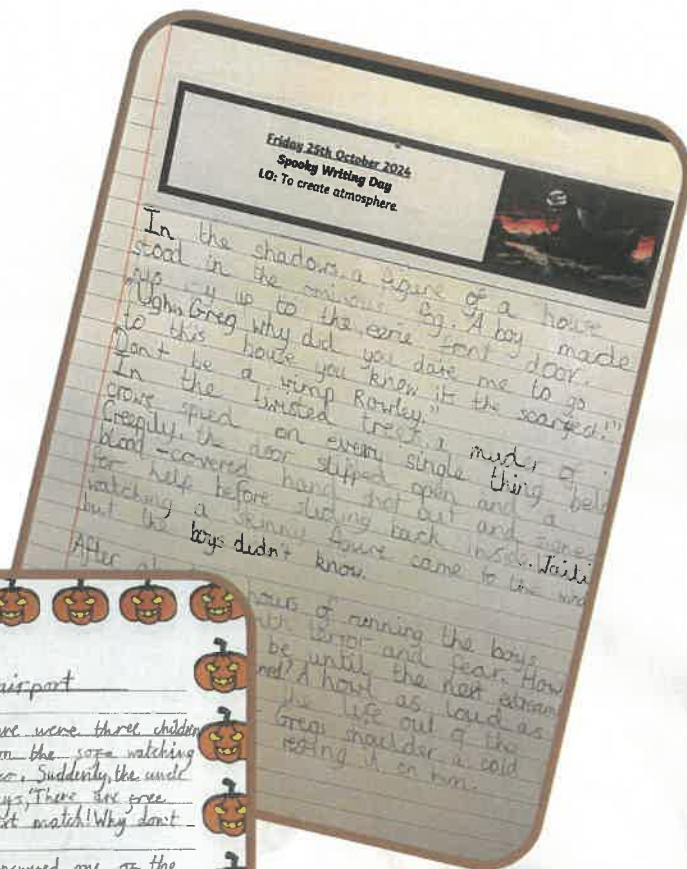 Friday 25th October 2024
Spooky Writing Day
LO: To create atmosphere.
In the shadows, a figure of a house
stood in the ominous fog. A boy made
up to the eerie front door.
"Ugh, Greg why did you dare me to go
to this house you know it the scaryest!"
Don't be a wimp Rowley."
In the twisted trees, a murder of
crows spied on every single thing belo
Creepily, the door slipped open and a
blood-covered hand shot out and signed
for help before sliding back inside.
watching a skinny figure came to the
but the boys didn't know.
After hours of running the boys
with terror and fear. How
be until the next scream
A howl as loud as
the life out of the
Gregs shoulder a cold
resting it on him.
airport
were three children
on the sofa watching
Suddenly, the uncle
There are free
match! Why don't
one of the